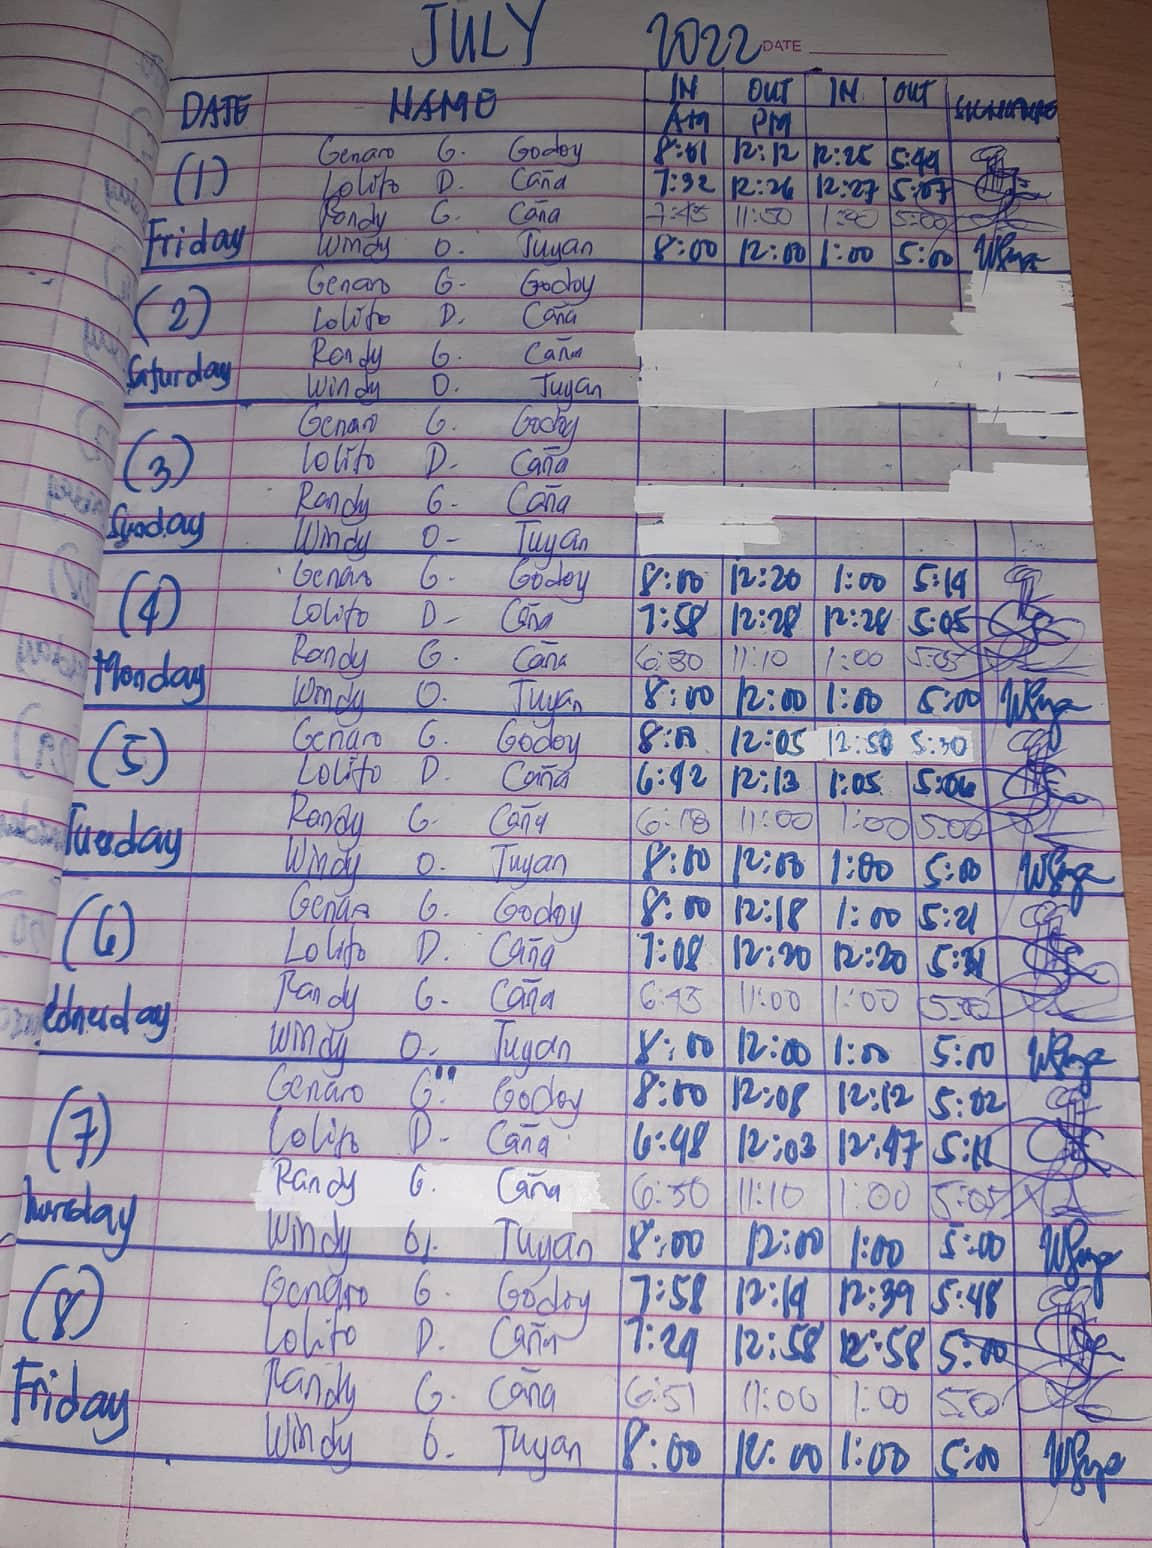 JULY 2022 DATE
DATE NAME IN OUT IN OUT SIGNATURE
AM PM
(1) Genaro G. Godoy 8:01 12:12 12:25 5:44
Lolito D. Caña 7:32 12:26 12:27 5:07
Randy G. Caña 7:45 11:50 1:30 5:00
Friday Windy O. Tuyan 8:00 12:00 1:00 5:00
Genaro G. Godoy
(2) Lolito D. Caña
Randy G. Caña
Saturday Windy O. Tuyan
Genaro G. Godoy
(3) Lolito D. Caña
Randy G. Caña
Sunday Windy O- Tuyan
Genaro G. Godoy 8:00 12:20 1:00 5:19
(4) Lolito D- Caña 7:58 12:28 12:28 5:05
Randy G. Caña 6:30 11:10 1:00 5:05
Monday Windy O. Tuyan 8:00 12:00 1:00 5:00
Genaro G. Godoy 12:05 12:50 5:30
(5) Lolito D. Caña 6:42 12:13 1:05 5:06
Randy G. Caña 6:18 11:00 1:00 5:00
Tuesday Windy O. Tuyan 8:00 12:00 1:00 5:00
Genaro G. Godoy 8:00 12:18 1:00 5:21
(6) Lolito D. Caña 7:08 12:20 12:20
Randy G- Caña 6:45 11:00 1:00 5:00
Wednesday Windy O. Tuyan 8:00 12:00 1:00 5:00
Genaro G. Godoy 8:00 12:08 12:12 5:02
(7) Lolito D- Caña 6:48 12:03 12:47 5:11
Randy G. Caña 6:30 11:10 1:00 5:05
Thursday Windy O. Tuyan 8:00 12:00 1:00 5:00
(8) Genaro G. Godoy 7:58 12:19 12:39 5:48
Lolito D. Caña 7:29 12:58 12:58 5:00
Randy G. Caña 6:51 11:00 1:00
Friday Windy O. Tuyan 8:00 12:00 1:00 5:00